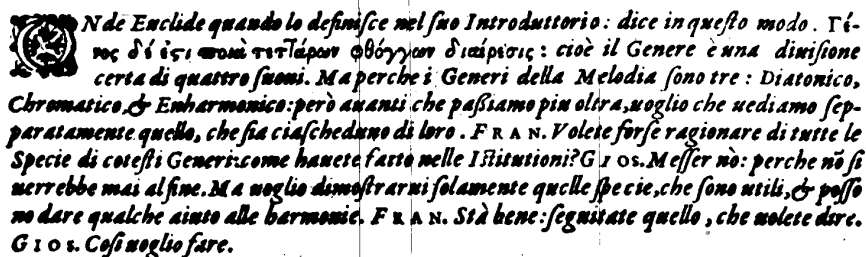 ONde Euclide quando lo definiſce nel ſuo Introduttorio: dice in queſto modo. Γέ-
νος δέ ἐςι ποιὰ τεττάρων φθόγγων διαίρεσις: cioè il Genere è una diuiſione
certa di quattro ſuoni. Ma perche i Generi della Melodia ſono tre: Diatonico,
Chromatico, & Enharmonico: però auanti che paßiamo piu oltra, uoglio che uediamo ſep-
paratamente quello, che ſia ciaſcheduno di loro. FRAN. Volete forſe ragionare di tutte le
Specie di coteſti Generi: come hauete fatto nelle Iſtitutioni? GIOS. Meſſer nò: perche nõ ſi
uerrebbe mai al fine. Ma uoglio dimoſtrarui ſolamente quelle ſpecie, che ſono utili, & poſſo
no dare qualche aiuto alle harmonie. FRAN. Stà bene: ſeguitate quello, che uolete dire.
GIOS. Coſi uoglio fare.